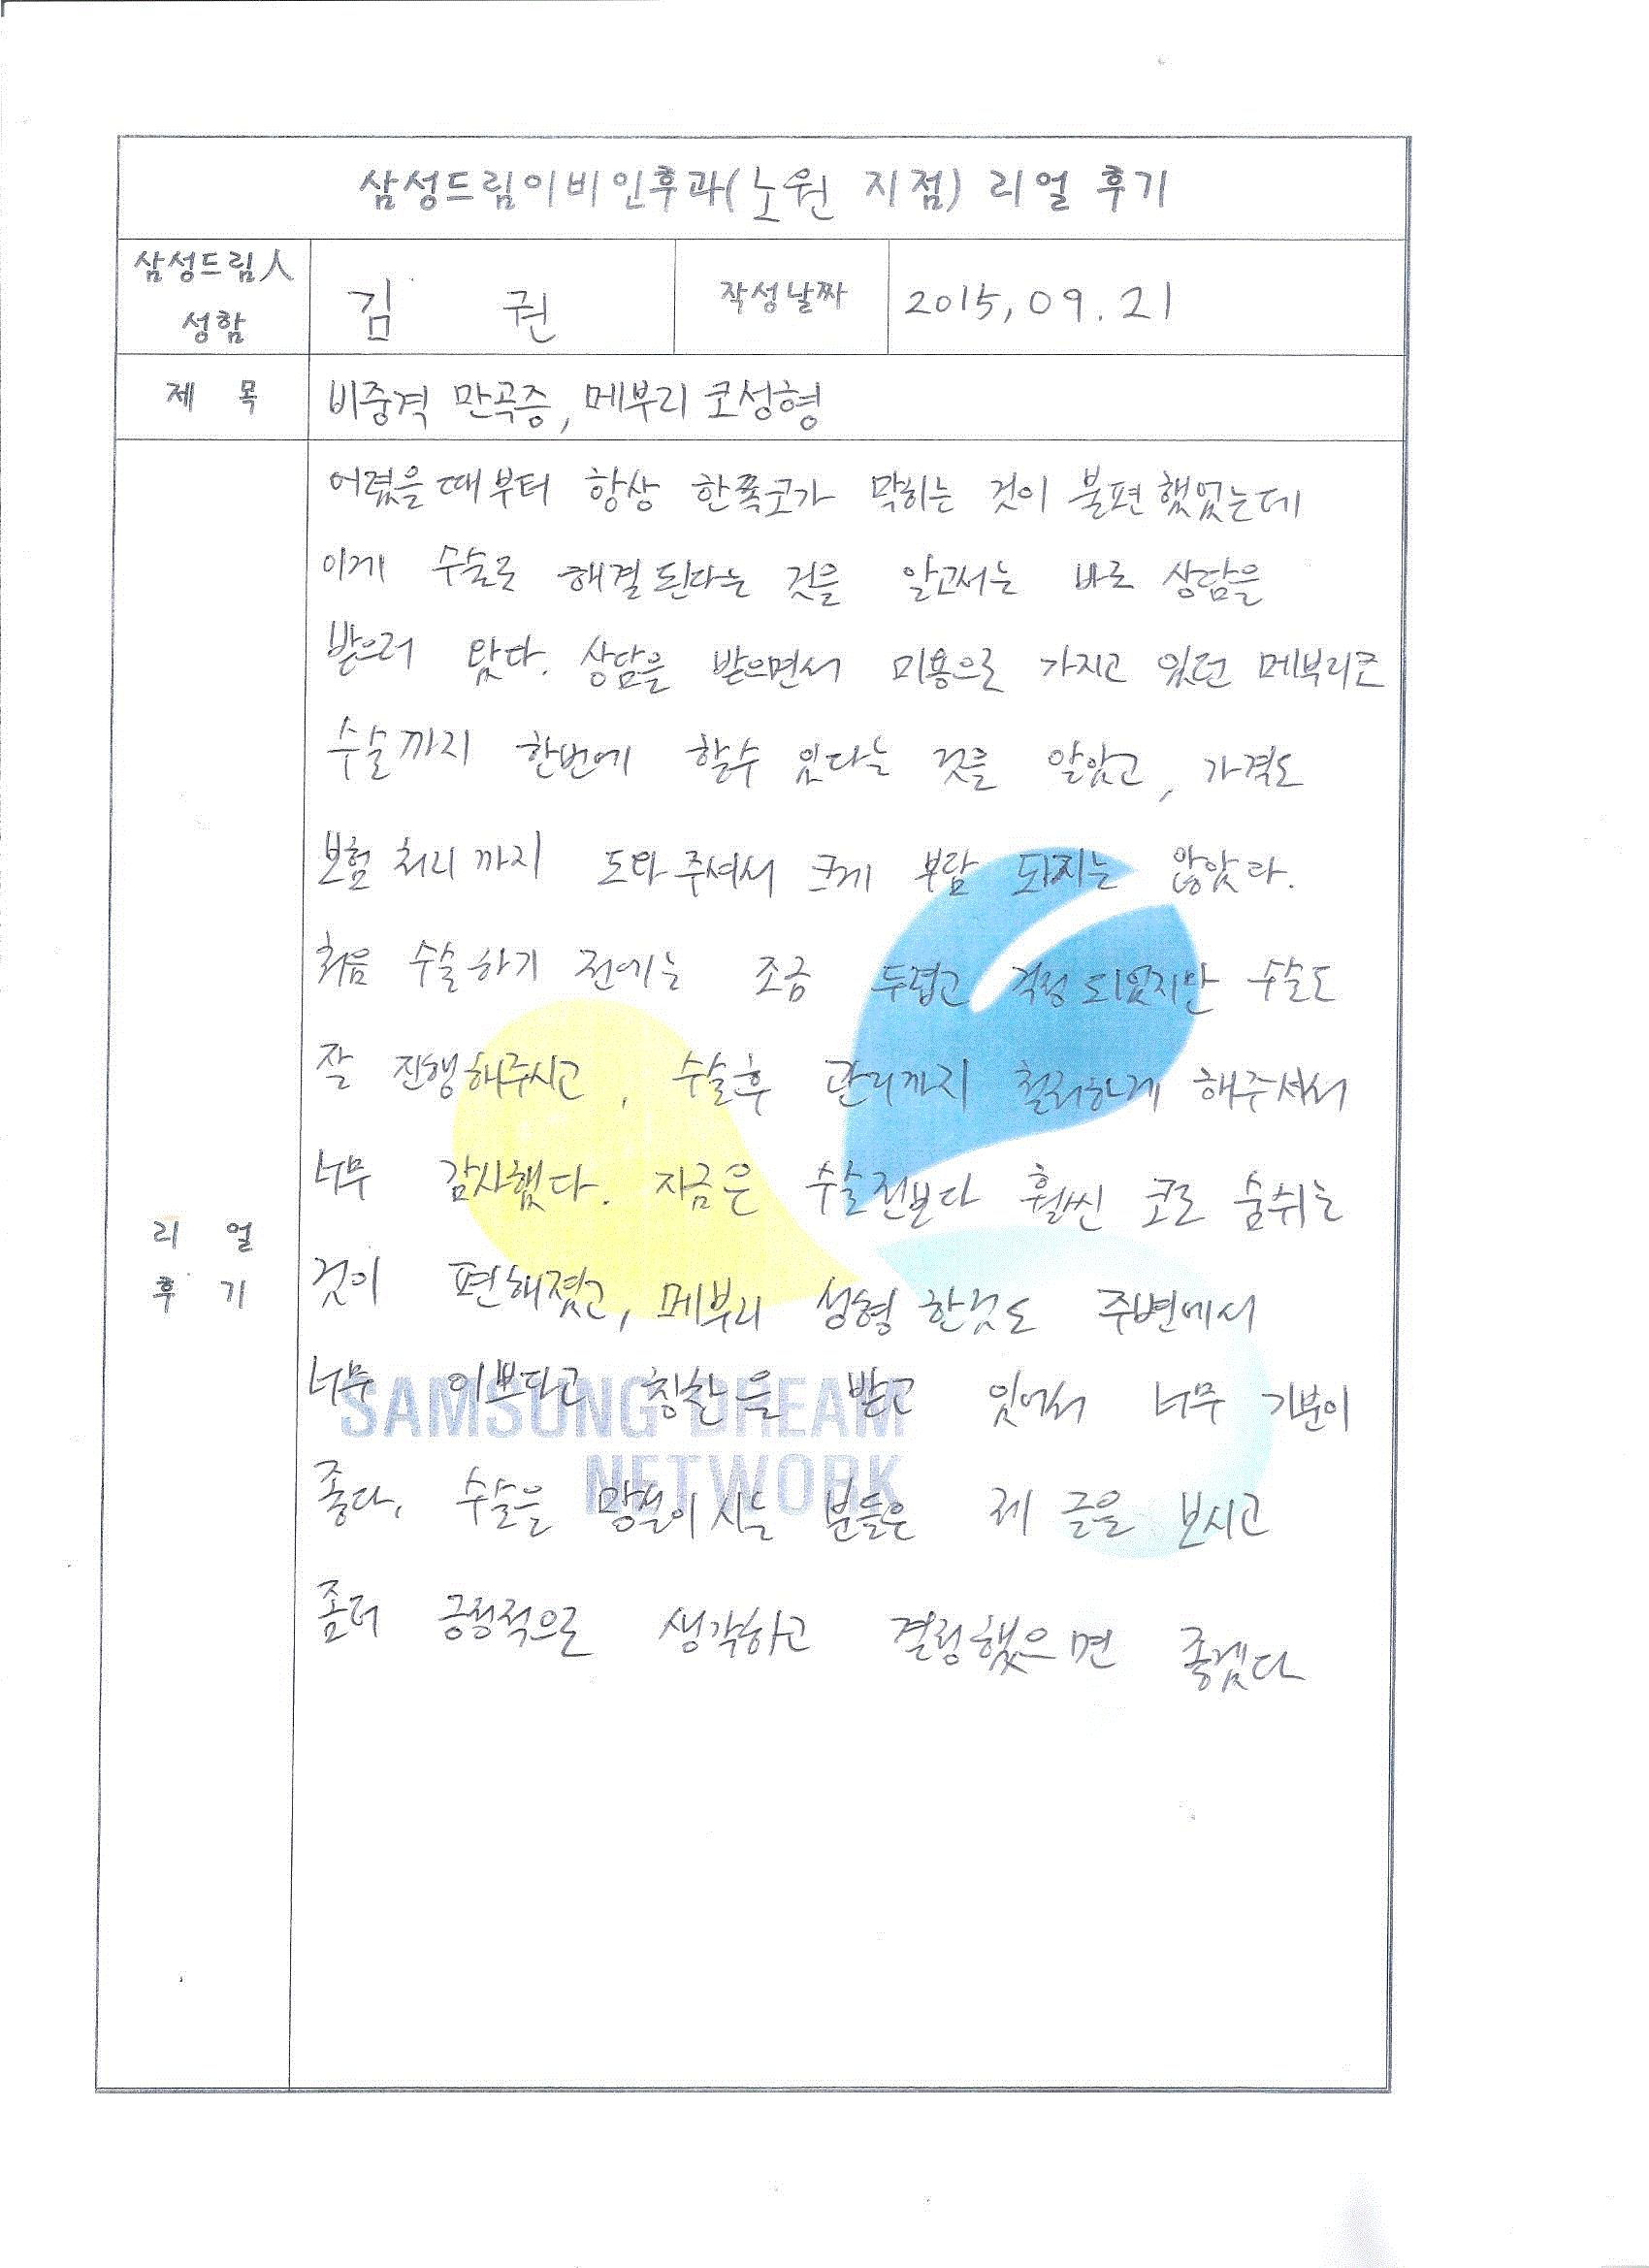 삼성드림이비인후과(노원 지점) 리얼 후기
삼성드림人 성함
김 권
작성날짜
2015, 09. 21
제 목
비중격 만곡증, 메부리 코성형
리 얼 후 기
어렸을때부터 항상 한쪽코가 막히는 것이 불편했었는데
이게 수술로 해결된다는 것을 알고서는 바로 상담을
받으러 왔다. 상담을 받으면서 미용으로 가지고 있던 메부리코
수술까지 한번에 할수 있다는 것을 알았고, 가격도
보험처리까지 도와주셔서 크게 부담 되지는 않았다.
처음 수술하기 전에는 조금 두렵고 걱정되었지만 수술도
잘 진행해주시고, 수술후 관리까지 철저하게 해주셔서
너무 감사했다. 지금은 수술전보다 훨씬 코로 숨쉬는
것이 편해졌고, 메부리 성형한것도 주변에서
너무 이쁘다고 칭찬을 받고 있어서 너무 기분이
좋다. 수술을 망설이시는 분들은 제 글을 보시고
좀더 긍정적으로 생각하고 결정했으면 좋겠다
SAMSUNG DREAM
NETWORK